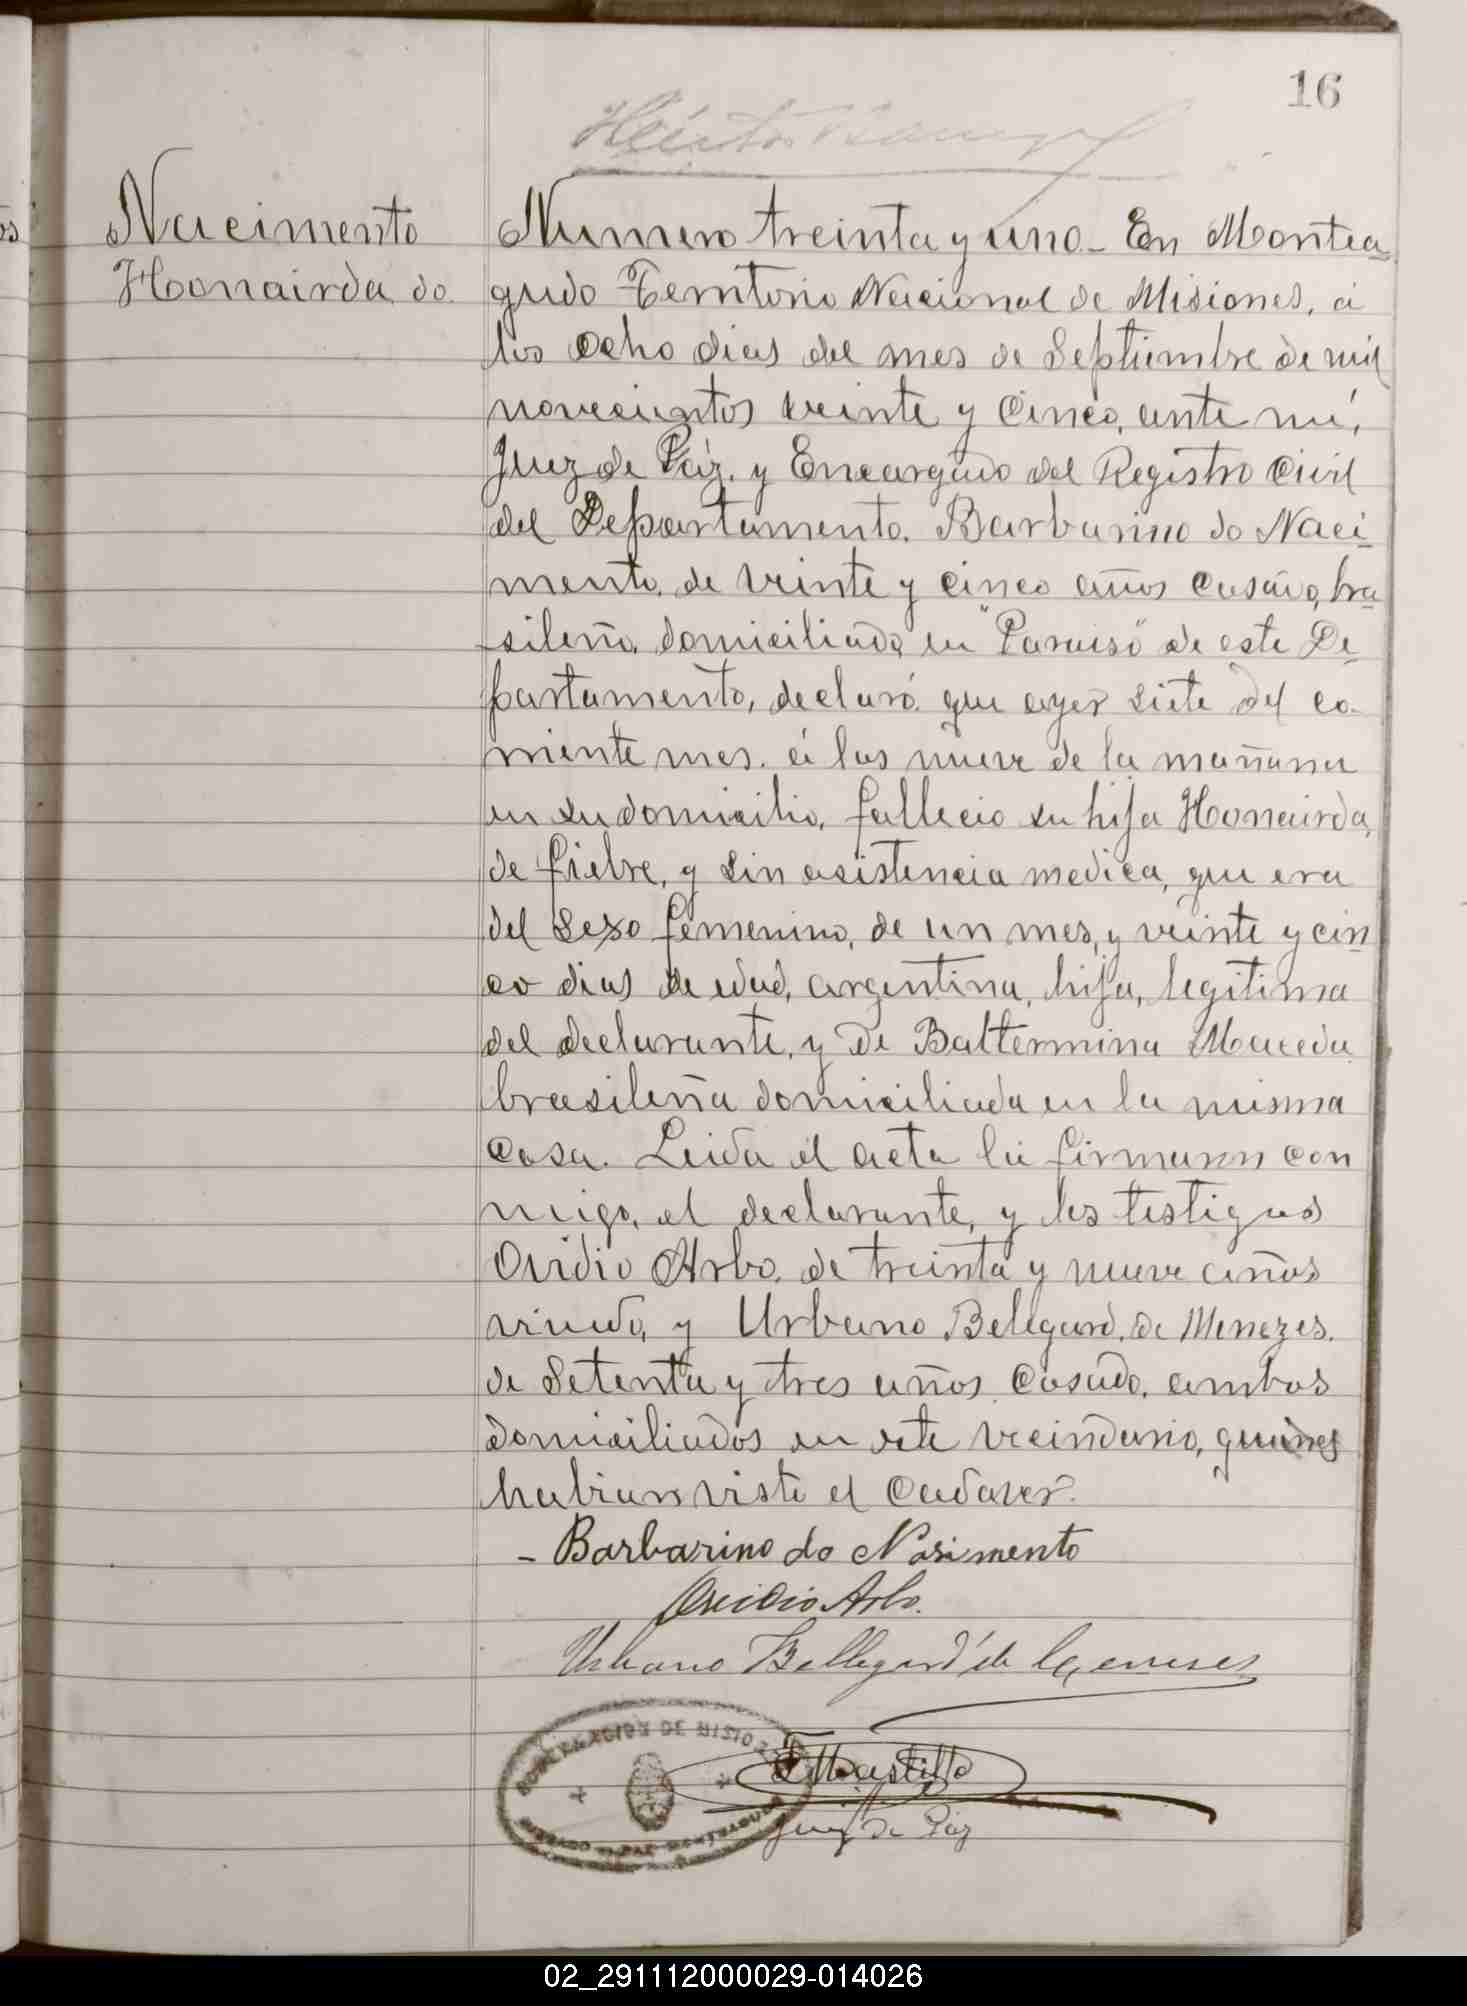 16
Nacimento
Honairda do
Numero treinta y uno_ En Montea_
gudo Territorio Nacional de Misiones, á
los ocho dias del mes de Septiembre de mil
novecientos veinte y cinco, ante mí,
Juez de Páz, y Encargado del Registro Civil
del Departamento. Barbarino do Naci_
mento, de veinte y cinco años casado, bra_
sileño, domiciliado en "Paraiso" de este De_
partamento, declaró que ayer siete del co_
rriente mes. á las nueve de la mañana
en su domicilio, fallecio su hija Honairda,
de fiebre, y sin asistencia medica, que era
del sexo femenino, de un mes, y veinte y cin_
co dias de edad, argentina, hija, legitima
del declarante, y de Baltermina Maceda
brasileña domiciliada en la misma
casa. Leida el acta la firmaron con
migo, el declarante, y los testigos
Ovidio Arbo, de treinta y nueve años
viudo, y Urbano Bellegard, de Menezes.
de setenta y tres años, casado, ambos
domiciliados en este vecindario, quienes
habian visto el cadaver.
_ Barbarino do Nasimento
Ovidio Arbo.
Urbano Bellegard de Menezes
GOBERNACION DE MISIONES
Juez de Páz
02_291112000029-014026